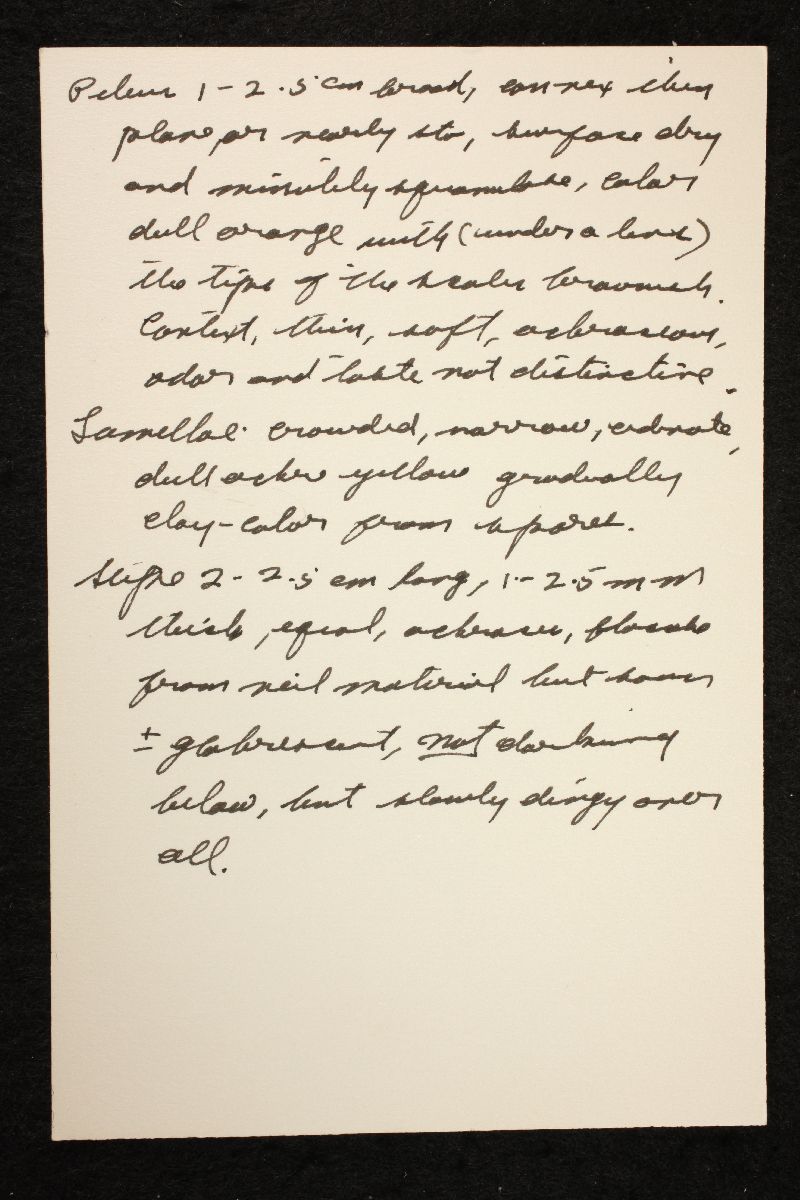 Pileus 1-2.5 cm broad, convex then
plane or nearly so, surface dry
and minutely squamulose, color
dull orange with (under a lens)
the tips of the scales brownish.
Context, thin, soft, ochraceous,
odor and taste not distinctive.
Lamellae crowded, narrow, adnate,
dull ochre yellow gradually
clay-color from spores.
Stipe 2-2.5 cm long, 1-2.5 mm
thick, equal, ochraceous, floccose
from veil material but soon
± glabrescent, not darkening
below, but slowly dingy over
all.